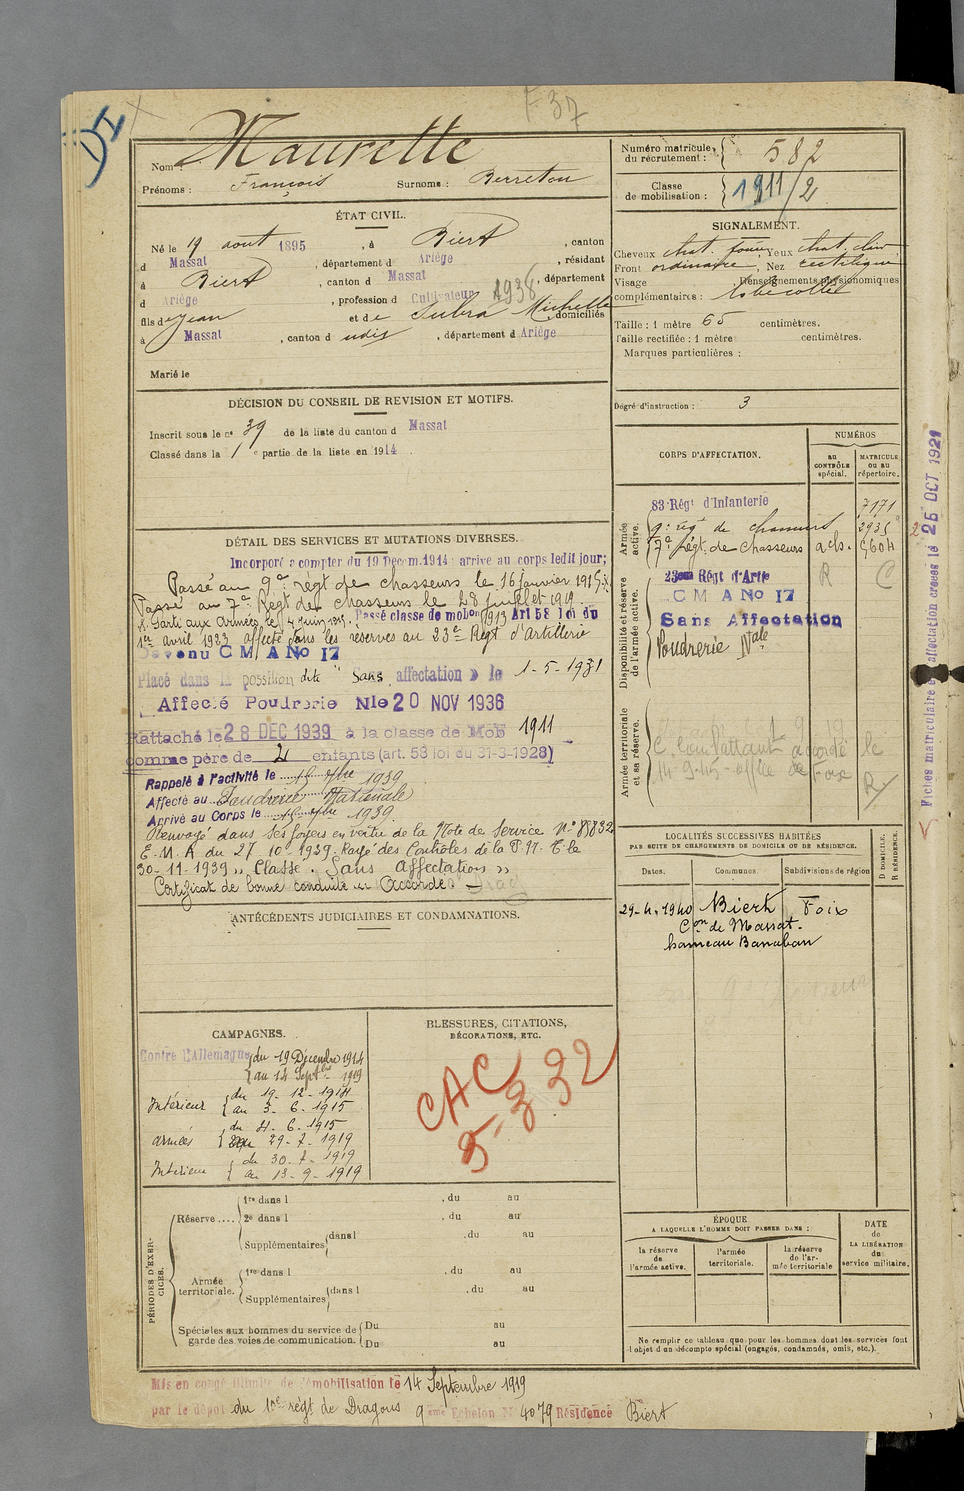 F 37
DI
Nom : Maurette
Prénoms : François Surnoms : Berreton
Numéro matricule du recrutement : 582
Classe de mobilisation : 1911/2
ÉTAT CIVIL.
Né le 19 août 1895, à Biert, canton
d Massat, département d Ariège, résidant
à Biert, canton d Massat, département
d Ariège, profession d Cultivateur 1938
fils de Jean et de Subra Michelle domiciliés
à Massat, canton d udis, département d Ariège
Marié le
SIGNALEMENT.
Cheveux chat. foncé Yeux chat. clair
Front ordinaire, Nez rectiligne
Visage Renseignements physionomiques
complémentaires : lobe collé
Taille : 1 mètre 65 centimètres.
Taille rectifiée : 1 mètre centimètres.
Marques particulières :
Degré d'instruction : 3
DÉCISION DU CONSEIL DE REVISION ET MOTIFS.
Inscrit sous le no 39 de la liste du canton d Massat
Classé dans la 1e partie de la liste en 1914.
DÉTAIL DES SERVICES ET MUTATIONS DIVERSES.
Incorporé à compter du 19 Décem. 1914 : arrivé au corps ledit jour;
Passé au 9e régt de chasseurs le 16 janvier 1915
Passé au 7e Régt de chasseurs le 28 juillet 1919
Parti aux Armées le 4 juin 1915. Passé classe de mobon 1913 Art 58 loi du
1er avril 1923 affecté dans les réserves au 23e Régt d'Artillerie
Devenu C M A No 17
Placé dans la position dite "Sans affectation" le 1-5-1931
Affecté Poudrerie Nle 20 NOV 1936
Rattaché le 28 DEC 1939 à la classe de Mob 1911
comme père de 2 enfants (art. 58 loi du 31-3-1928)
Rappelé à l'activité le 7bre 1939
Affecté au Poudrerie Nationale
Arrivé au Corps le 7bre 1939.
Renvoyé dans ses foyers en vertu de la Note de Service No 8832
E.M.A du 27 10-1939. Rayé des Contrôles de la P.N. T le
30-11-1939 ,, Classé . Sans Affectation ,,
Certificat de bonne conduite " Accordé "
CORPS D'AFFECTATION.
NUMÉROS
au CONTRÔLE spécial.
MATRICULE ou au répertoire.
Armée active.
83 Régt d'Infanterie 7171
9e régt de chasseurs 2935
7e Régt de Chasseurs a ch. 5604
Disponibilité et réserve de l'armée active.
23eme Régt d'Artie R C
C M A No 17
Sans Affectation
Poudrerie Nale
Armée territoriale et sa réserve.
C. Combattant accordé le
14-9-45 - office de Foix
R
Fiches matriculaire et affectation créées le 26 OCT 1921
LOCALITÉS SUCCESSIVES HABITÉES
PAR SUITE DE CHANGEMENTS DE DOMICILE OU DE RÉSIDENCE.
D DOMICILE.
R RÉSIDENCE.
Dates. Communes. Subdivisions de région
29-4-1940 Biert Foix
Con de Massat.
hameau Banaban
ANTÉCÉDENTS JUDICIAIRES ET CONDAMNATIONS.
CAMPAGNES.
Contre l'Allemagne du 19 Décembre 1914
au 14 Septbre 1919
Intérieur du 19-12-1914
au 3-6-1915
armées du 4-6-1915
au 29-7-1919
Intérieur du 30-7-1919
au 13-9-1919
BLESSURES, CITATIONS,
DÉCORATIONS, ETC.
CAC
5-3 32
PÉRIODES D'EXERCICES.
Réserve .... 1re dans l , du au
2e dans l , du au
Supplémentaires dans l , du au
Armée territoriale. 1re dans l , du au
Supplémentaires dans l , du au
Spéciales aux hommes du service de garde des voies de communication. Du au
Du au
ÉPOQUE
A LAQUELLE L'HOMME DOIT PASSER DANS :
la réserve de l'armée active.
l'armée territoriale.
la réserve de l'armée territoriale
DATE de LA LIBÉRATION du service militaire.
Ne remplir ce tableau que pour les hommes dont les services font
l'objet d'un décompte spécial (engagés, condamnés, omis, etc.).
Mis en congé illimité de démobilisation le 14 Septembre 1919
par le dépôt du 10e régt de Dragons 9eme Echelon No 4079 Résidence Biert